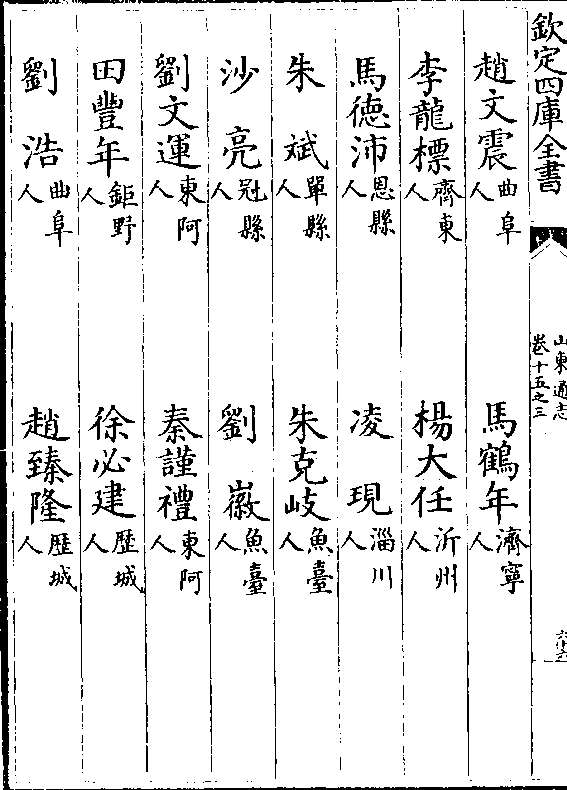 欽定四庫全書
山東通志
卷十五之三
趙文震曲阜人
馬鶴年濟寧人
李龍標齊東人
楊大任沂州人
馬德沛恩縣人
凌現淄川人
朱斌單縣人
朱克岐魚臺人
沙亮冠縣人
劉徽魚臺人
劉文運東阿人
秦謹禮東阿人
田豐年鉅野人
徐必建歷城人
劉浩曲阜人
趙臻隆歷城人